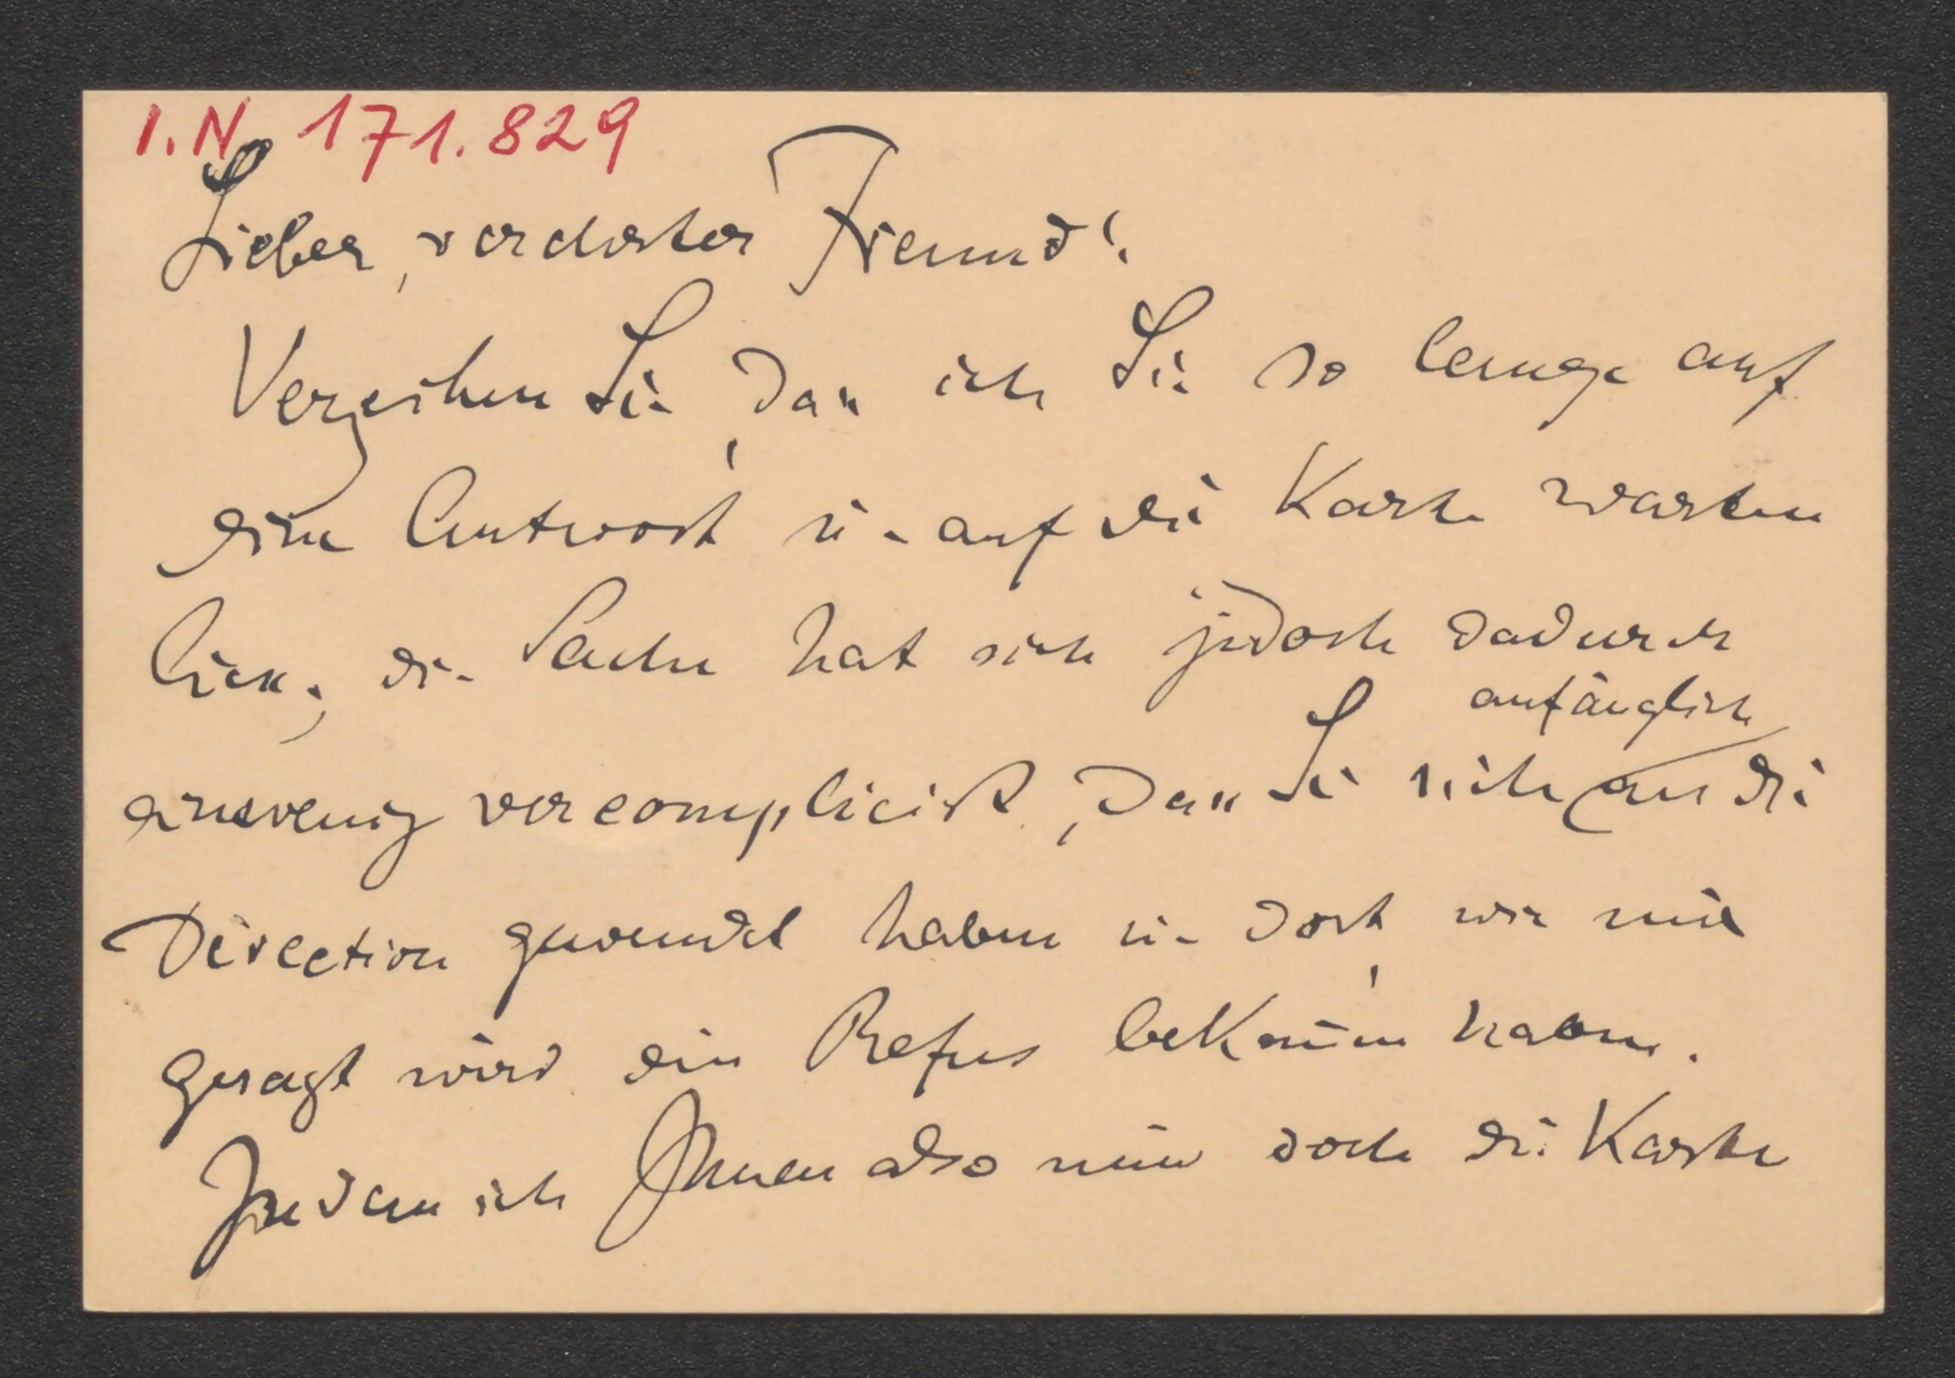 I.N. 171.829
Lieber, verehrter Freund!
Verzeihen Sie, dass ich Sie so lange auf
eine Antwort u. auf die Karte warten
liess; die Sache hat sich jedoch dadurch
ein wenig vercompliciert, dass Sie sich anfänglich an die
Direction gewendet haben u. dort, wie mir
gesagt wird ein Refus bekom̄en haben.
Indem ich Ihnen also nun doch die Karte